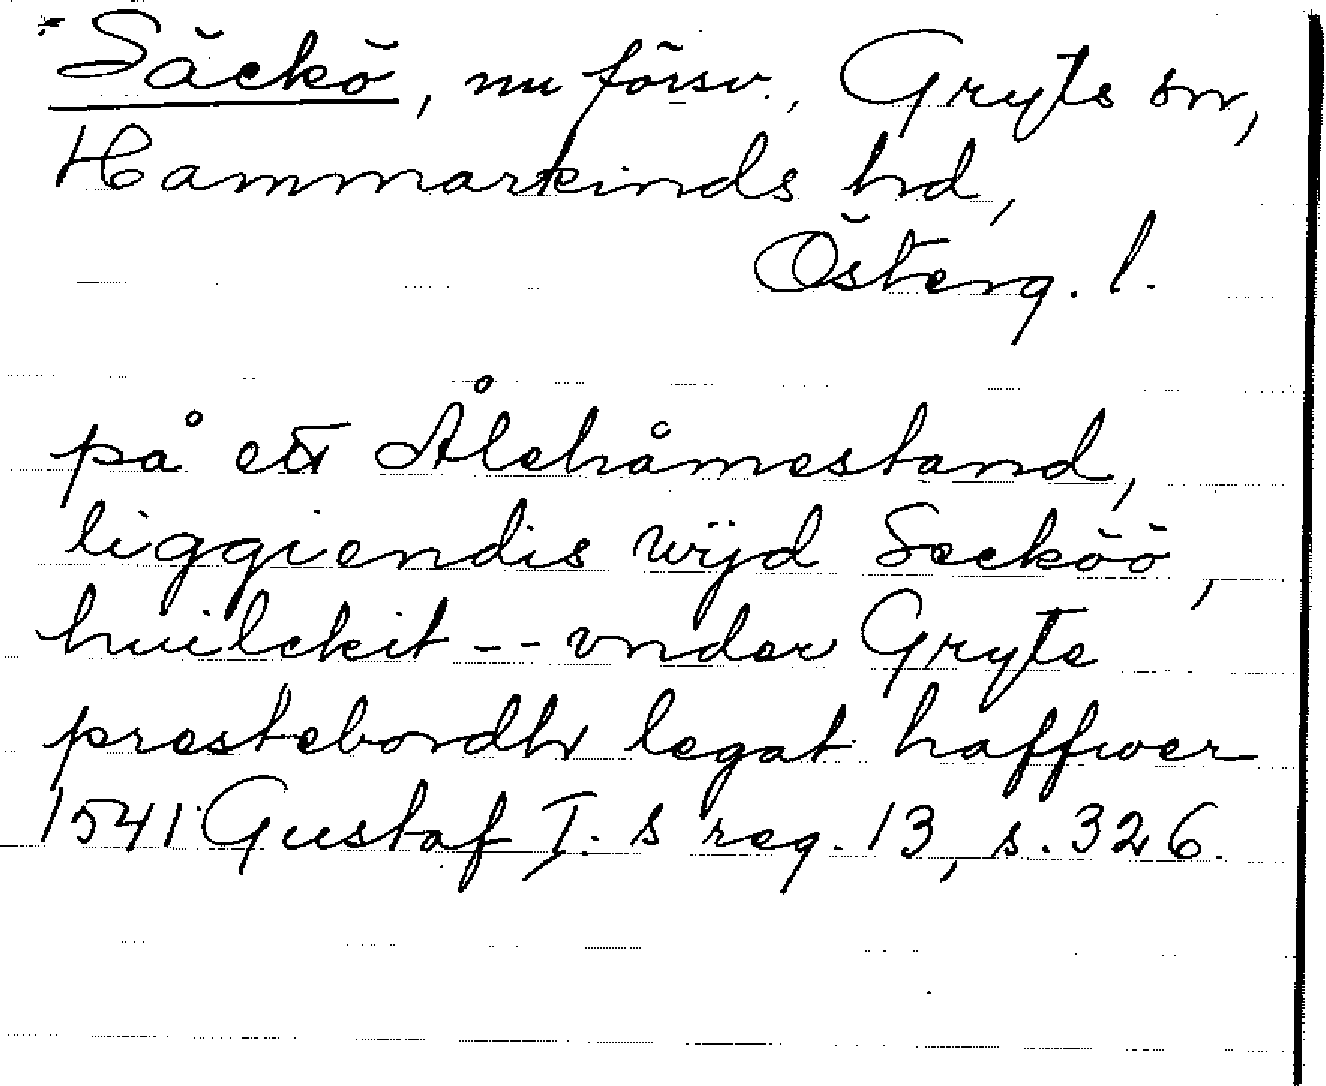 *Säckö, nu försv., Gryts sn,
Hammarkinds hd,
Österg. l.
på ett Ålehåmestand,
liggiendis wijd Seeköö,
huilckit -- vnder Gryte
prestebordh legat haffwer
1541 Gustaf I:s reg. 13, s. 326.